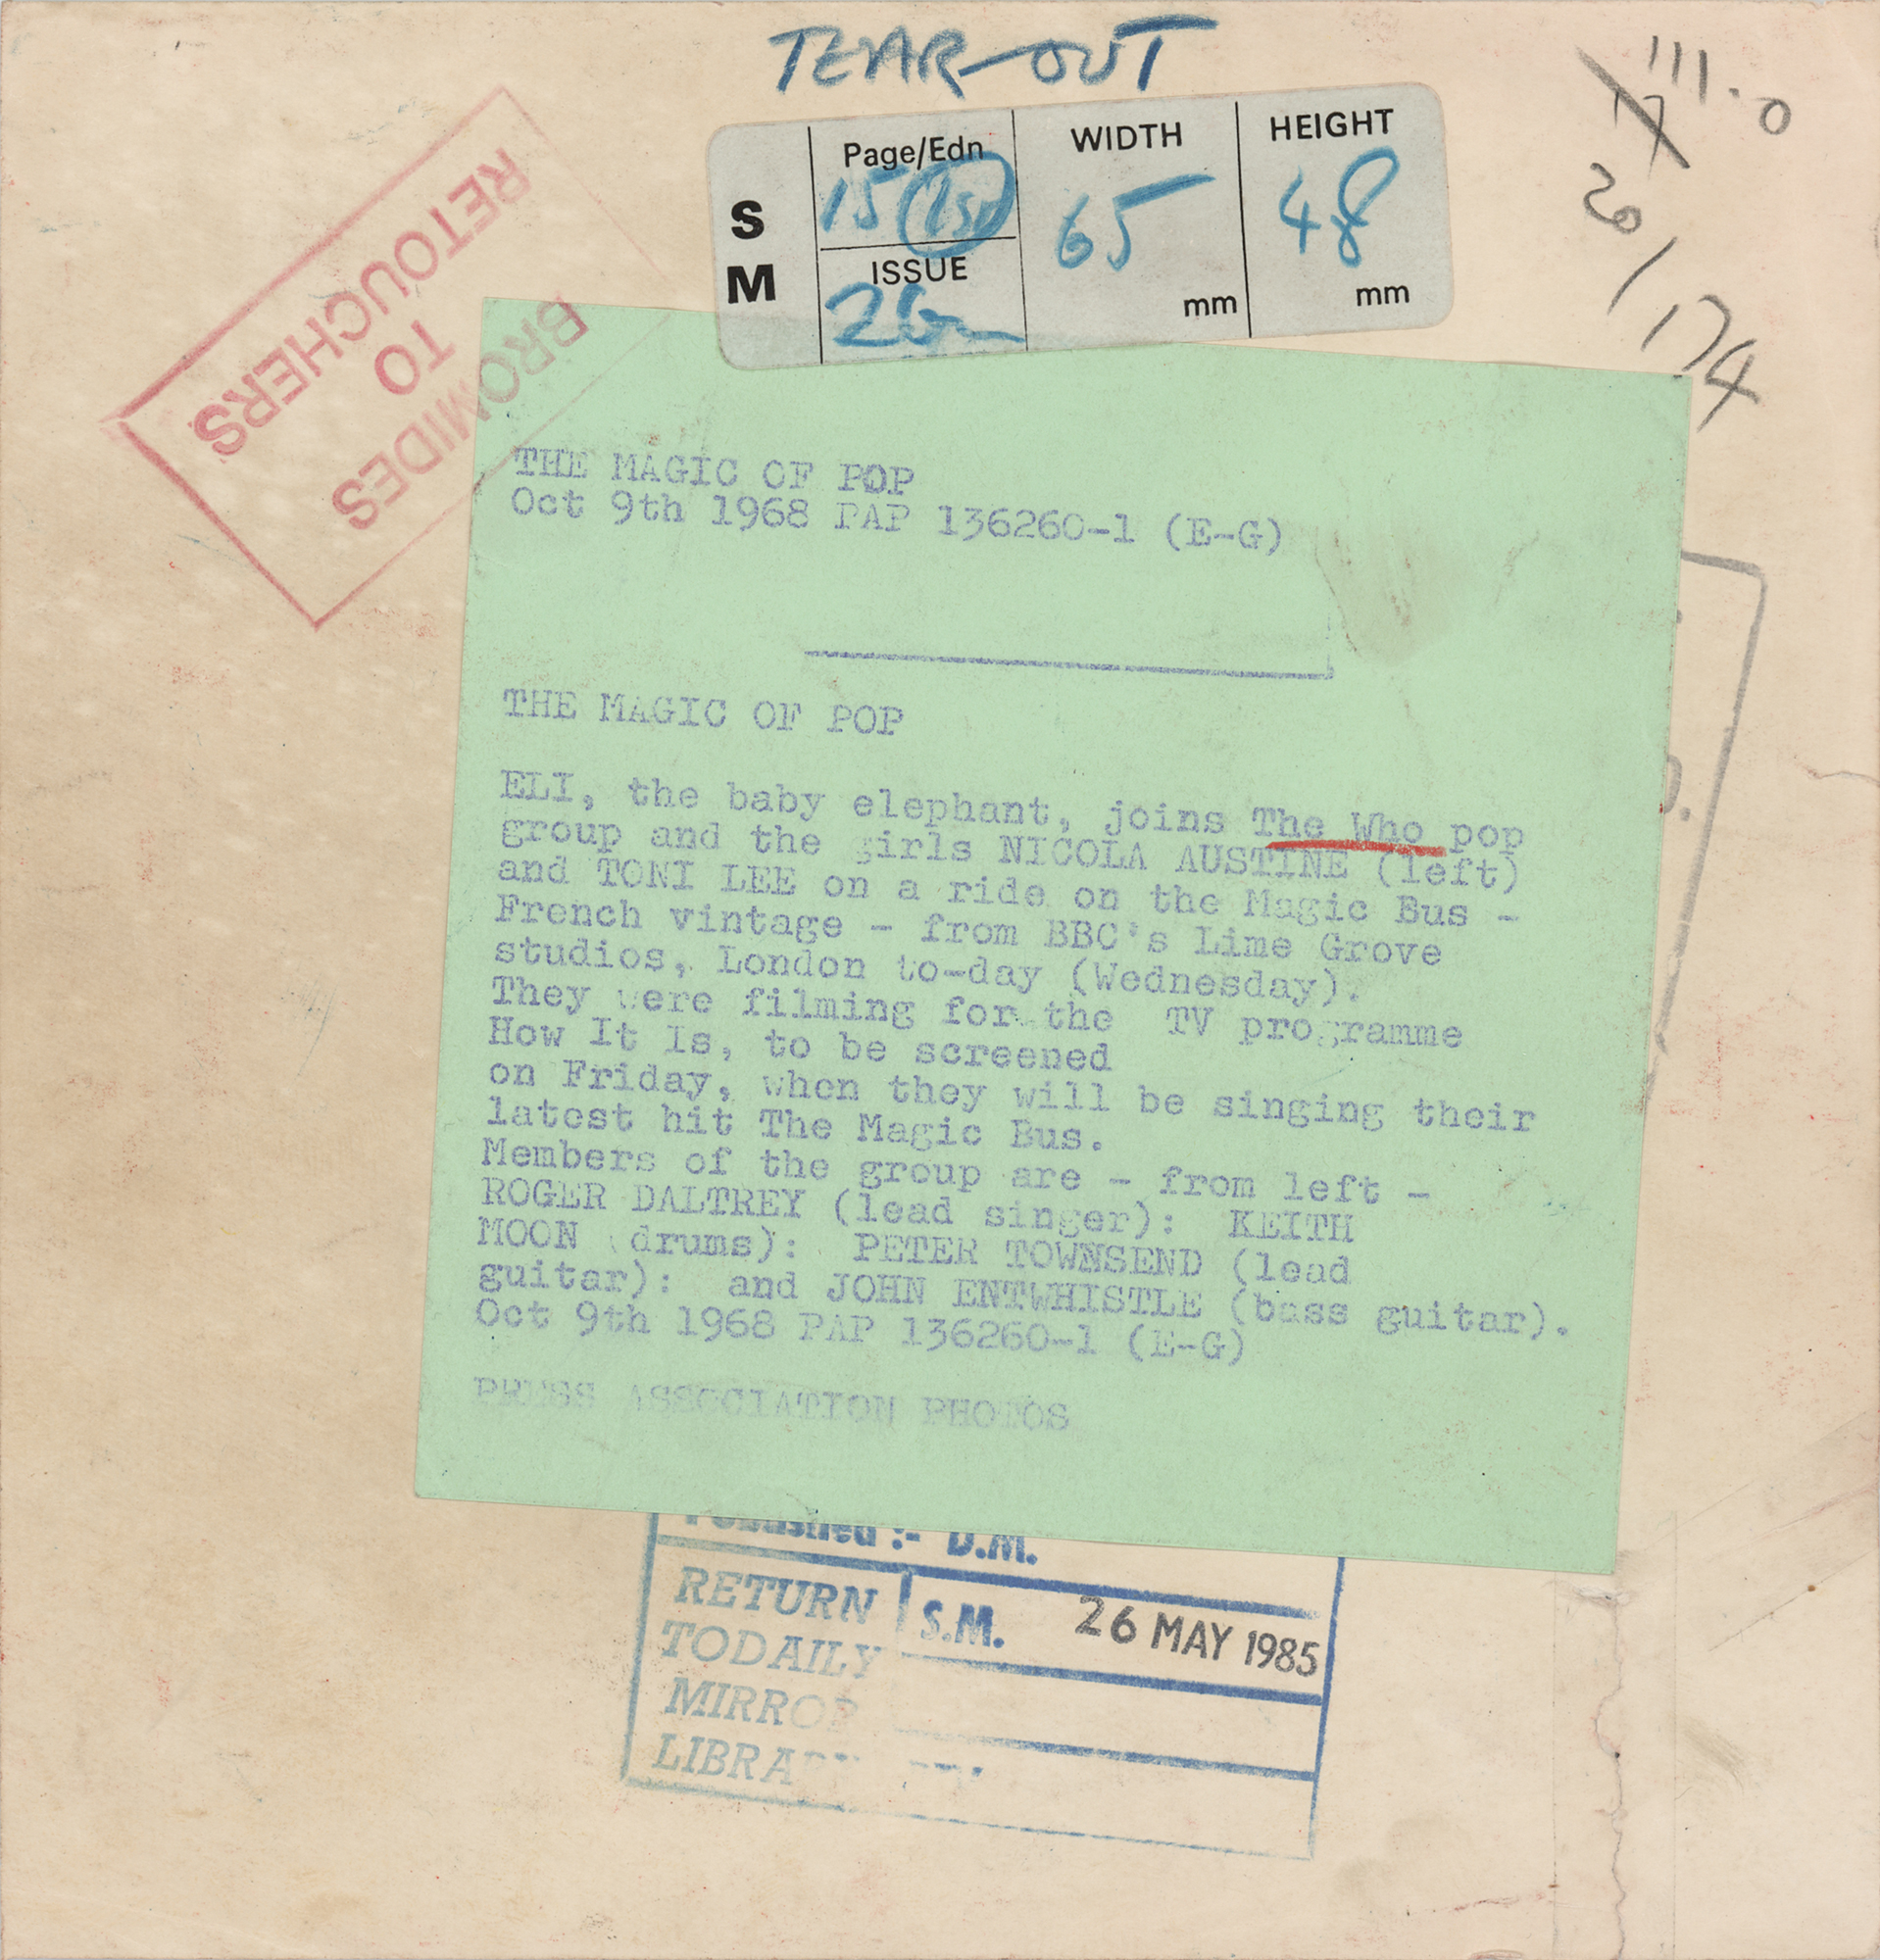 TEAR-OUT
111.0
17
20
174
S
M
Page/Edn
15
ISSUE
WIDTH
65
mm
HEIGHT
48
mm
BROMIDES
TO
RETOUCHERS
THE MAGIC OF POP
Oct 9th 1968 PAP 136260-1 (E-G)
THE MAGIC OF POP
ELI, the baby elephant, joins The Who pop
group and the girls NICOLA AUSTINE (left)
and TONI LEE on a ride on the Magic Bus -
French vintage - from BBC's Lime Grove
studios, London to-day (Wednesday).
They were filming for the TV programme
How It Is, to be screened
on Friday, when they will be singing their
latest hit The Magic Bus.
Members of the group are - from left -
ROGER DALTREY (lead singer): KEITH
MOON (drums): PETER TOWNSEND (lead
guitar): and JOHN ENTWHISTLE (bass guitar).
Oct 9th 1968 PAP 136260-1 (E-G)
PRESS ASSOCIATION PHOTOS
Published :- D.M.
RETURN
TO DAILY
MIRROR
LIBRARY
S.M. 26 MAY 1985